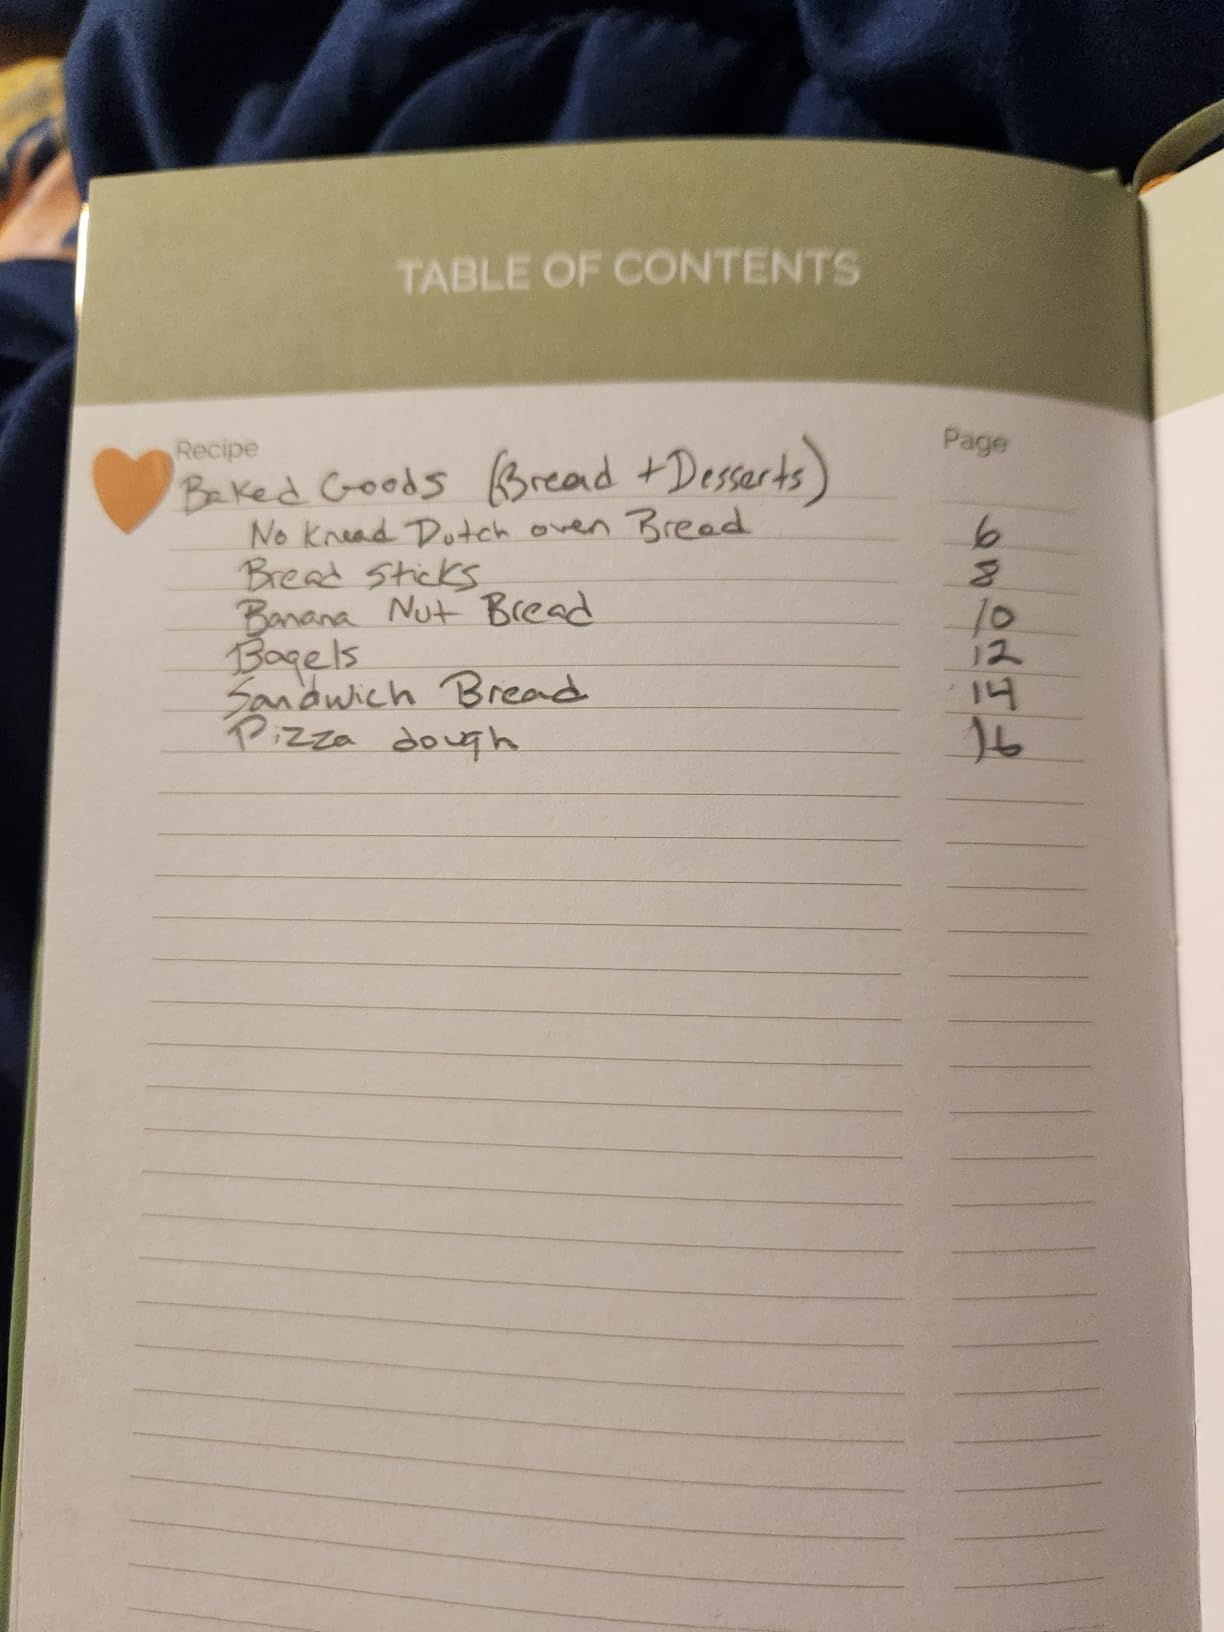 TABLE OF CONTENTS
Recipe Page
Baked Goods (Bread + Desserts)
No Knead Dutch oven Bread 6
Bread Sticks 8
Banana Nut Bread 10
Bagels 12
Sandwich Bread 14
Pizza dough 16